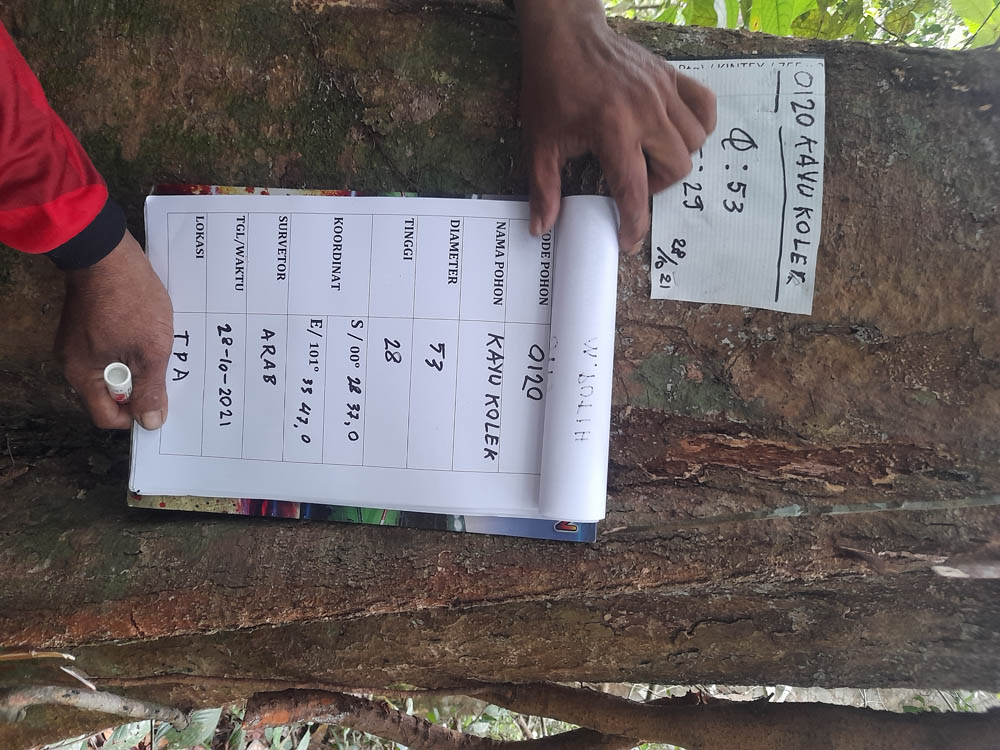 0120 KAYU KOLEK
Q : 53
: 29
28/10 21
KODE POHON 0120
NAMA POHON KAYU KOLEK
DIAMETER 53
TINGGI 28
KOORDINAT S / 00° 28 37,0
E/ 101° 33 47,0
SURVETOR ARAB
TGL/WAKTU 28-10-2021
LOKASI TPA